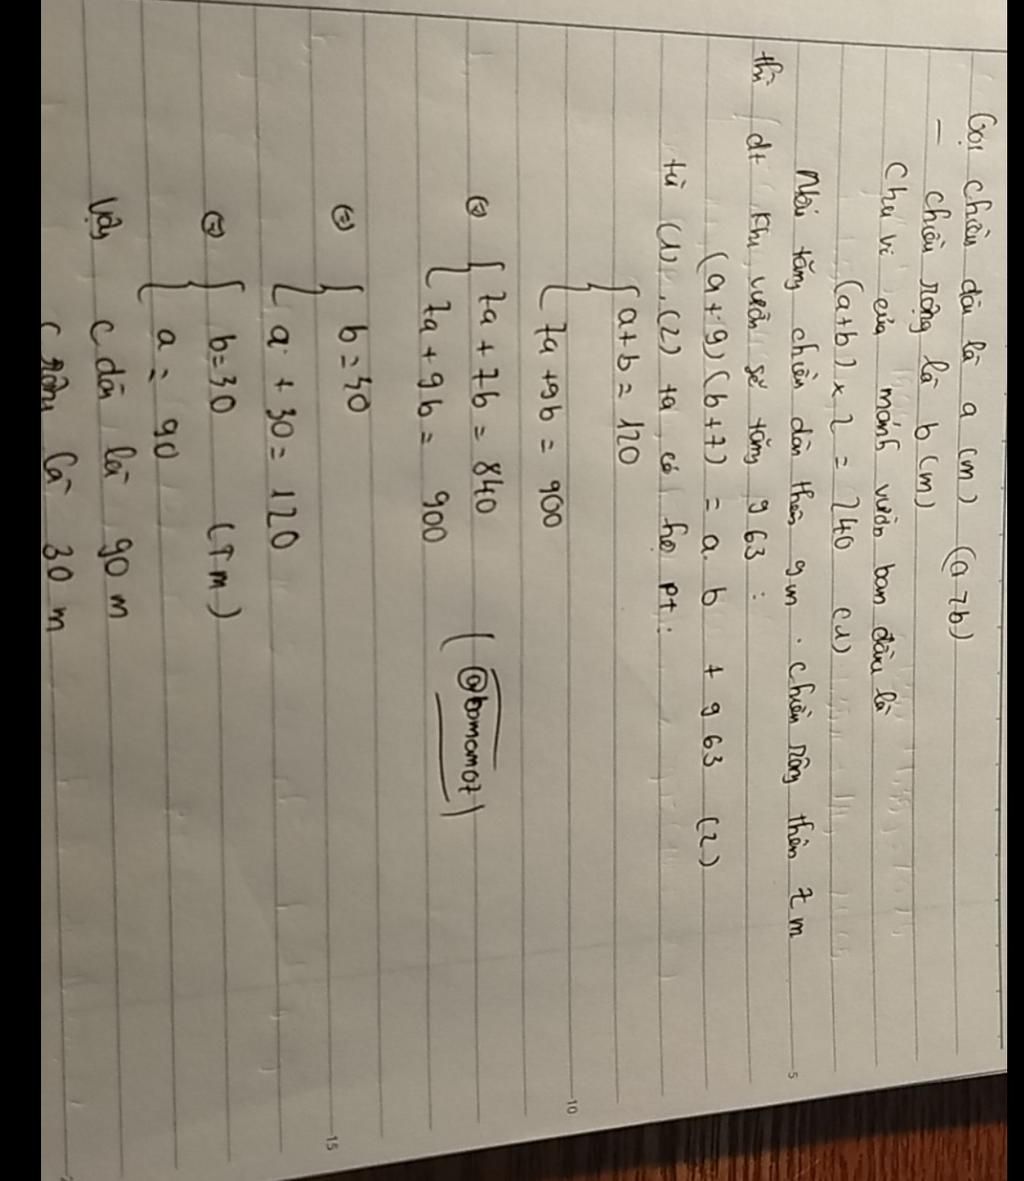 Gọi chiều dài là a (m) (a > b)
– chiều rộng là b (m)
Chu vi của mảnh vườn ban đầu là
(a+b) x 2 = 240 (1)
Nếu tăng chiều dài thêm 9m . chiều rộng thêm 7 m
thì dt khu vườn sẽ tăng 963 :
(a+9)(b+7) = a.b + 963 (2)
từ (1), (2) ta có hệ pt:
{ a+b = 120
7a+9b = 900
⇔ { 7a+7b = 840
7a+9b = 900
(@bomamo7)
⇔ { b = 30
{ a + 30 = 120
⇔ { b = 30 (Tm)
a = 90
Vậy c dài là 90 m
c rộng là 30 m
5
10
15